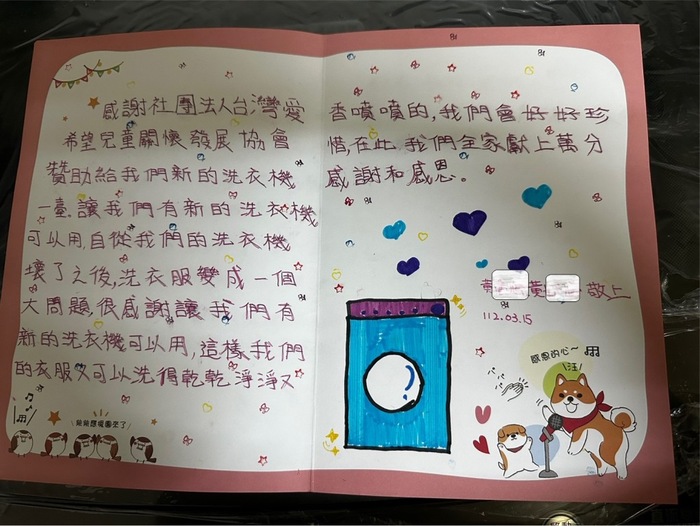 感謝社團法人台灣愛
希望兒童關懷發展協會
贊助給我們新的洗衣機
一臺.讓我們有新的洗衣機
可以用.自從我們的洗衣機
壞了之後,洗衣服變成一個
大問題.很感謝讓我們有
新的洗衣機可以用,這樣我們
的衣服又可以洗得乾乾淨淨又
啾啾應援團來了
香噴噴的,我們會好好珍
惜,在此我們全家獻上萬分
感謝和感恩。
黃 敬上
112.03.15
感恩的心～
汪!